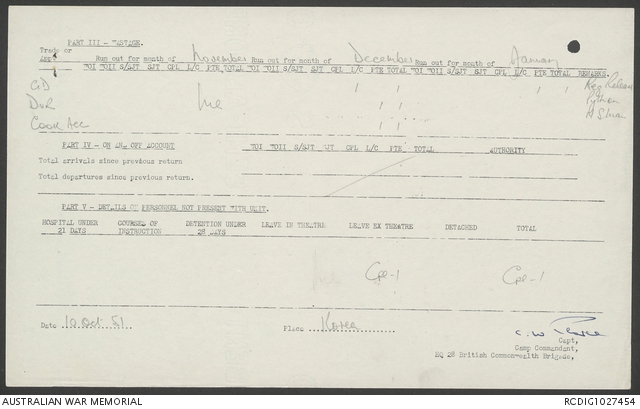 PART III - WASTAGE.
Trade or
Appt Run out for month of November Run out for month of December Run out for month of January
TOI TOII S/SJT SJT CPL L/C PTE TOTAL TOI TOII S/SJT SJT CPL L/C PTE TOTAL TOI TOII S/SJT SJT CPL L/C PTE TOTAL REMARKS.
GD 1 1 1 1 Reg Release
Dvr 1 1 Python
Cook ACC 1 1
PART IV - ON AND OFF ACCOUNT TOI TOII S/SJT SJT CPL L/C PTE TOTAL AUTHORITY
Total arrivals since previous return
Total departures since previous return.
PART V - DETAILS OF PERSONNEL NOT PRESENT WITH UNIT.
HOSPITAL UNDER 21 DAYS COURSES OF INSTRUCTION DETENTION UNDER 28 DAYS LEAVE IN THEATRE LEAVE EX THEATRE DETACHED TOTAL
Cpl-1 Cpl-1
Date 10 Oct 51 Place Korea
Capt,
Camp Commandant,
HQ 28 British Commonwealth Brigade,
AUSTRALIAN WAR MEMORIAL RCDIG1027454